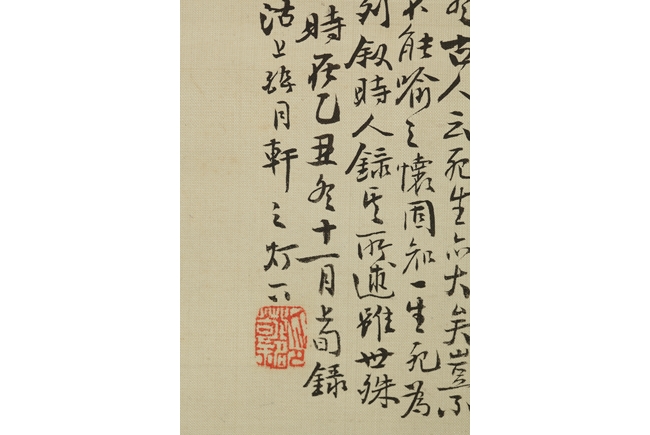 古人云死生亦大矣豈不
不能喻之懷固知一生死為
列叙時人録其所述雖世殊
時在乙丑冬十一月上旬録
沽上醉月軒之灯下